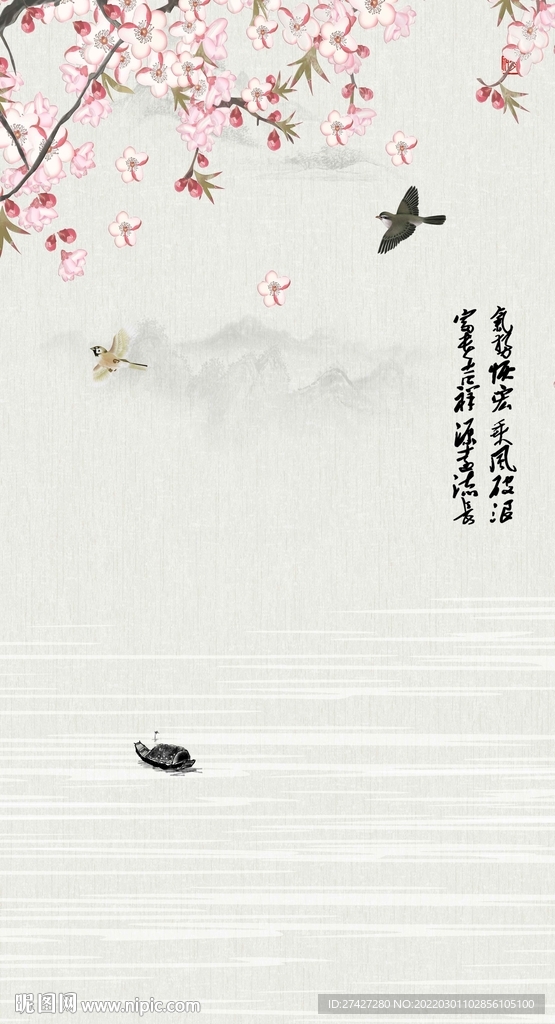 氣勢恢宏 乘風破浪
富貴吉祥 源遠流長
昵图网 www.nipic.com
ID:27427280 NO:20220301102856105100